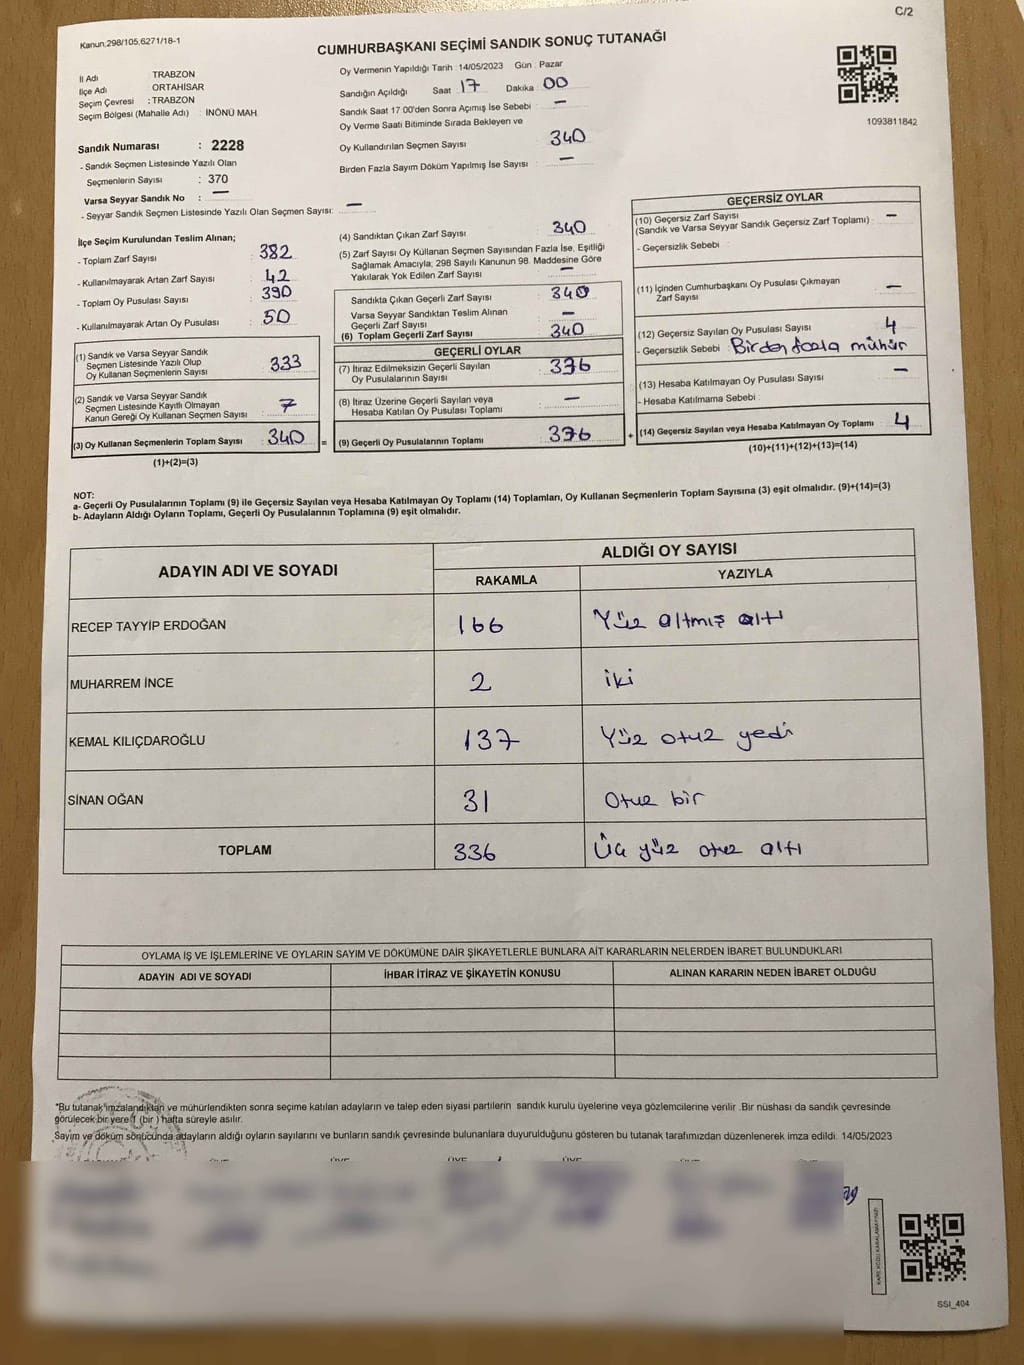 C/2
Kanun,298/105,6271/18-1
CUMHURBAŞKANI SEÇİMİ SANDIK SONUÇ TUTANAĞI
İl Adı TRABZON
İlçe Adı ORTAHİSAR
Seçim Çevresi : TRABZON
Seçim Bölgesi (Mahalle Adı) : İNÖNÜ MAH
Oy Vermenin Yapıldığı Tarih : 14/05/2023 Gün : Pazar
Sandığın Açıldığı Saat 17 Dakika 00
Sandık Saat 17 00'den Sonra Açımış İse Sebebi : —
Oy Verme Saati Bitiminde Sırada Bekleyen ve
Oy Kullandırılan Seçmen Sayısı : 340
Birden Fazla Sayım Döküm Yapılmış İse Sayısı : —
1093811842
Sandık Numarası : 2228
- Sandık Seçmen Listesinde Yazılı Olan
Seçmenlerin Sayısı : 370
Varsa Seyyar Sandık No : —
- Seyyar Sandık Seçmen Listesinde Yazılı Olan Seçmen Sayısı: —
İlçe Seçim Kurulundan Teslim Alınan;
- Toplam Zarf Sayısı : 382
- Kullanılmayarak Artan Zarf Sayısı : 42
- Toplam Oy Pusulası Sayısı : 390
- Kullanılmayarak Artan Oy Pusulası : 50
(1) Sandık ve Varsa Seyyar Sandık
Seçmen Listesinde Yazılı Olup
Oy Kullanan Seçmenlerin Sayısı : 333
(2) Sandık ve Varsa Seyyar Sandık
Seçmen Listesinde Kayıtlı Olmayan
Kanun Gereği Oy Kullanan Seçmen Sayısı : 7
(3) Oy Kullanan Seçmenlerin Toplam Sayısı : 340 =
(1)+(2)=(3)
(4) Sandıktan Çıkan Zarf Sayısı : 340
(5) Zarf Sayısı Oy Kullanan Seçmen Sayısından Fazla İse, Eşitliği
Sağlamak Amacıyla; 298 Sayılı Kanunun 98. Maddesine Göre
Yakılarak Yok Edilen Zarf Sayısı : —
Sandıkta Çıkan Geçerli Zarf Sayısı : 340
Varsa Seyyar Sandıktan Teslim Alınan
Geçerli Zarf Sayısı : —
(6) Toplam Geçerli Zarf Sayısı : 340
GEÇERLİ OYLAR
(7) İtiraz Edilmeksizin Geçerli Sayılan
Oy Pusulalarının Sayısı : 336
(8) İtiraz Üzerine Geçerli Sayılan veya
Hesaba Katılan Oy Pusulası Toplamı : —
(9) Geçerli Oy Pusulalarının Toplamı : 336 +
GEÇERSİZ OYLAR
(10) Geçersiz Zarf Sayısı : —
(Sandık ve Varsa Seyyar Sandık Geçersiz Zarf Toplamı)
- Geçersizlik Sebebi :
(11) İçinden Cumhurbaşkanı Oy Pusulası Çıkmayan
Zarf Sayısı : —
(12) Geçersiz Sayılan Oy Pusulası Sayısı : 4
- Geçersizlik Sebebi : Birden fazla mühür
(13) Hesaba Katılmayan Oy Pusulası Sayısı : —
- Hesaba Katılmama Sebebi :
(14) Geçersiz Sayılan veya Hesaba Katılmayan Oy Toplamı : 4
(10)+(11)+(12)+(13)=(14)
NOT:
a- Geçerli Oy Pusulalarının Toplamı (9) ile Geçersiz Sayılan veya Hesaba Katılmayan Oy Toplamı (14) Toplamları, Oy Kullanan Seçmenlerin Toplam Sayısına (3) eşit olmalıdır. (9)+(14)=(3)
b- Adayların Aldığı Oyların Toplamı, Geçerli Oy Pusulalarının Toplamına (9) eşit olmalıdır.
ADAYIN ADI VE SOYADI ALDIĞI OY SAYISI
RAKAMLA YAZIYLA
RECEP TAYYİP ERDOĞAN 166 Yüz altmış altı
MUHARREM İNCE 2 iki
KEMAL KILIÇDAROĞLU 137 Yüz otuz yedi
SİNAN OĞAN 31 Otuz bir
TOPLAM 336 Üç yüz otuz altı
OYLAMA İŞ VE İŞLEMLERİNE VE OYLARIN SAYIM VE DÖKÜMÜNE DAİR ŞİKAYETLERLE BUNLARA AİT KARARLARIN NELERDEN İBARET BULUNDUKLARI
ADAYIN ADI VE SOYADI İHBAR İTİRAZ VE ŞİKAYETİN KONUSU ALINAN KARARIN NEDEN İBARET OLDUĞU
*Bu tutanak imzalandıktan ve mühürlendikten sonra seçime katılan adayların ve talep eden siyasi partilerin sandık kurulu üyelerine veya gözlemcilerine verilir .Bir nüshası da sandık çevresinde
görülecek bir yere 1 (bir ) hafta süreyle asılır.
Sayım ve döküm sonucunda adayların aldığı oyların sayılarını ve bunların sandık çevresinde bulunanlara duyurulduğunu gösteren bu tutanak tarafımızdan düzenlenerek imza edildi. 14/05/2023
SSİ_404